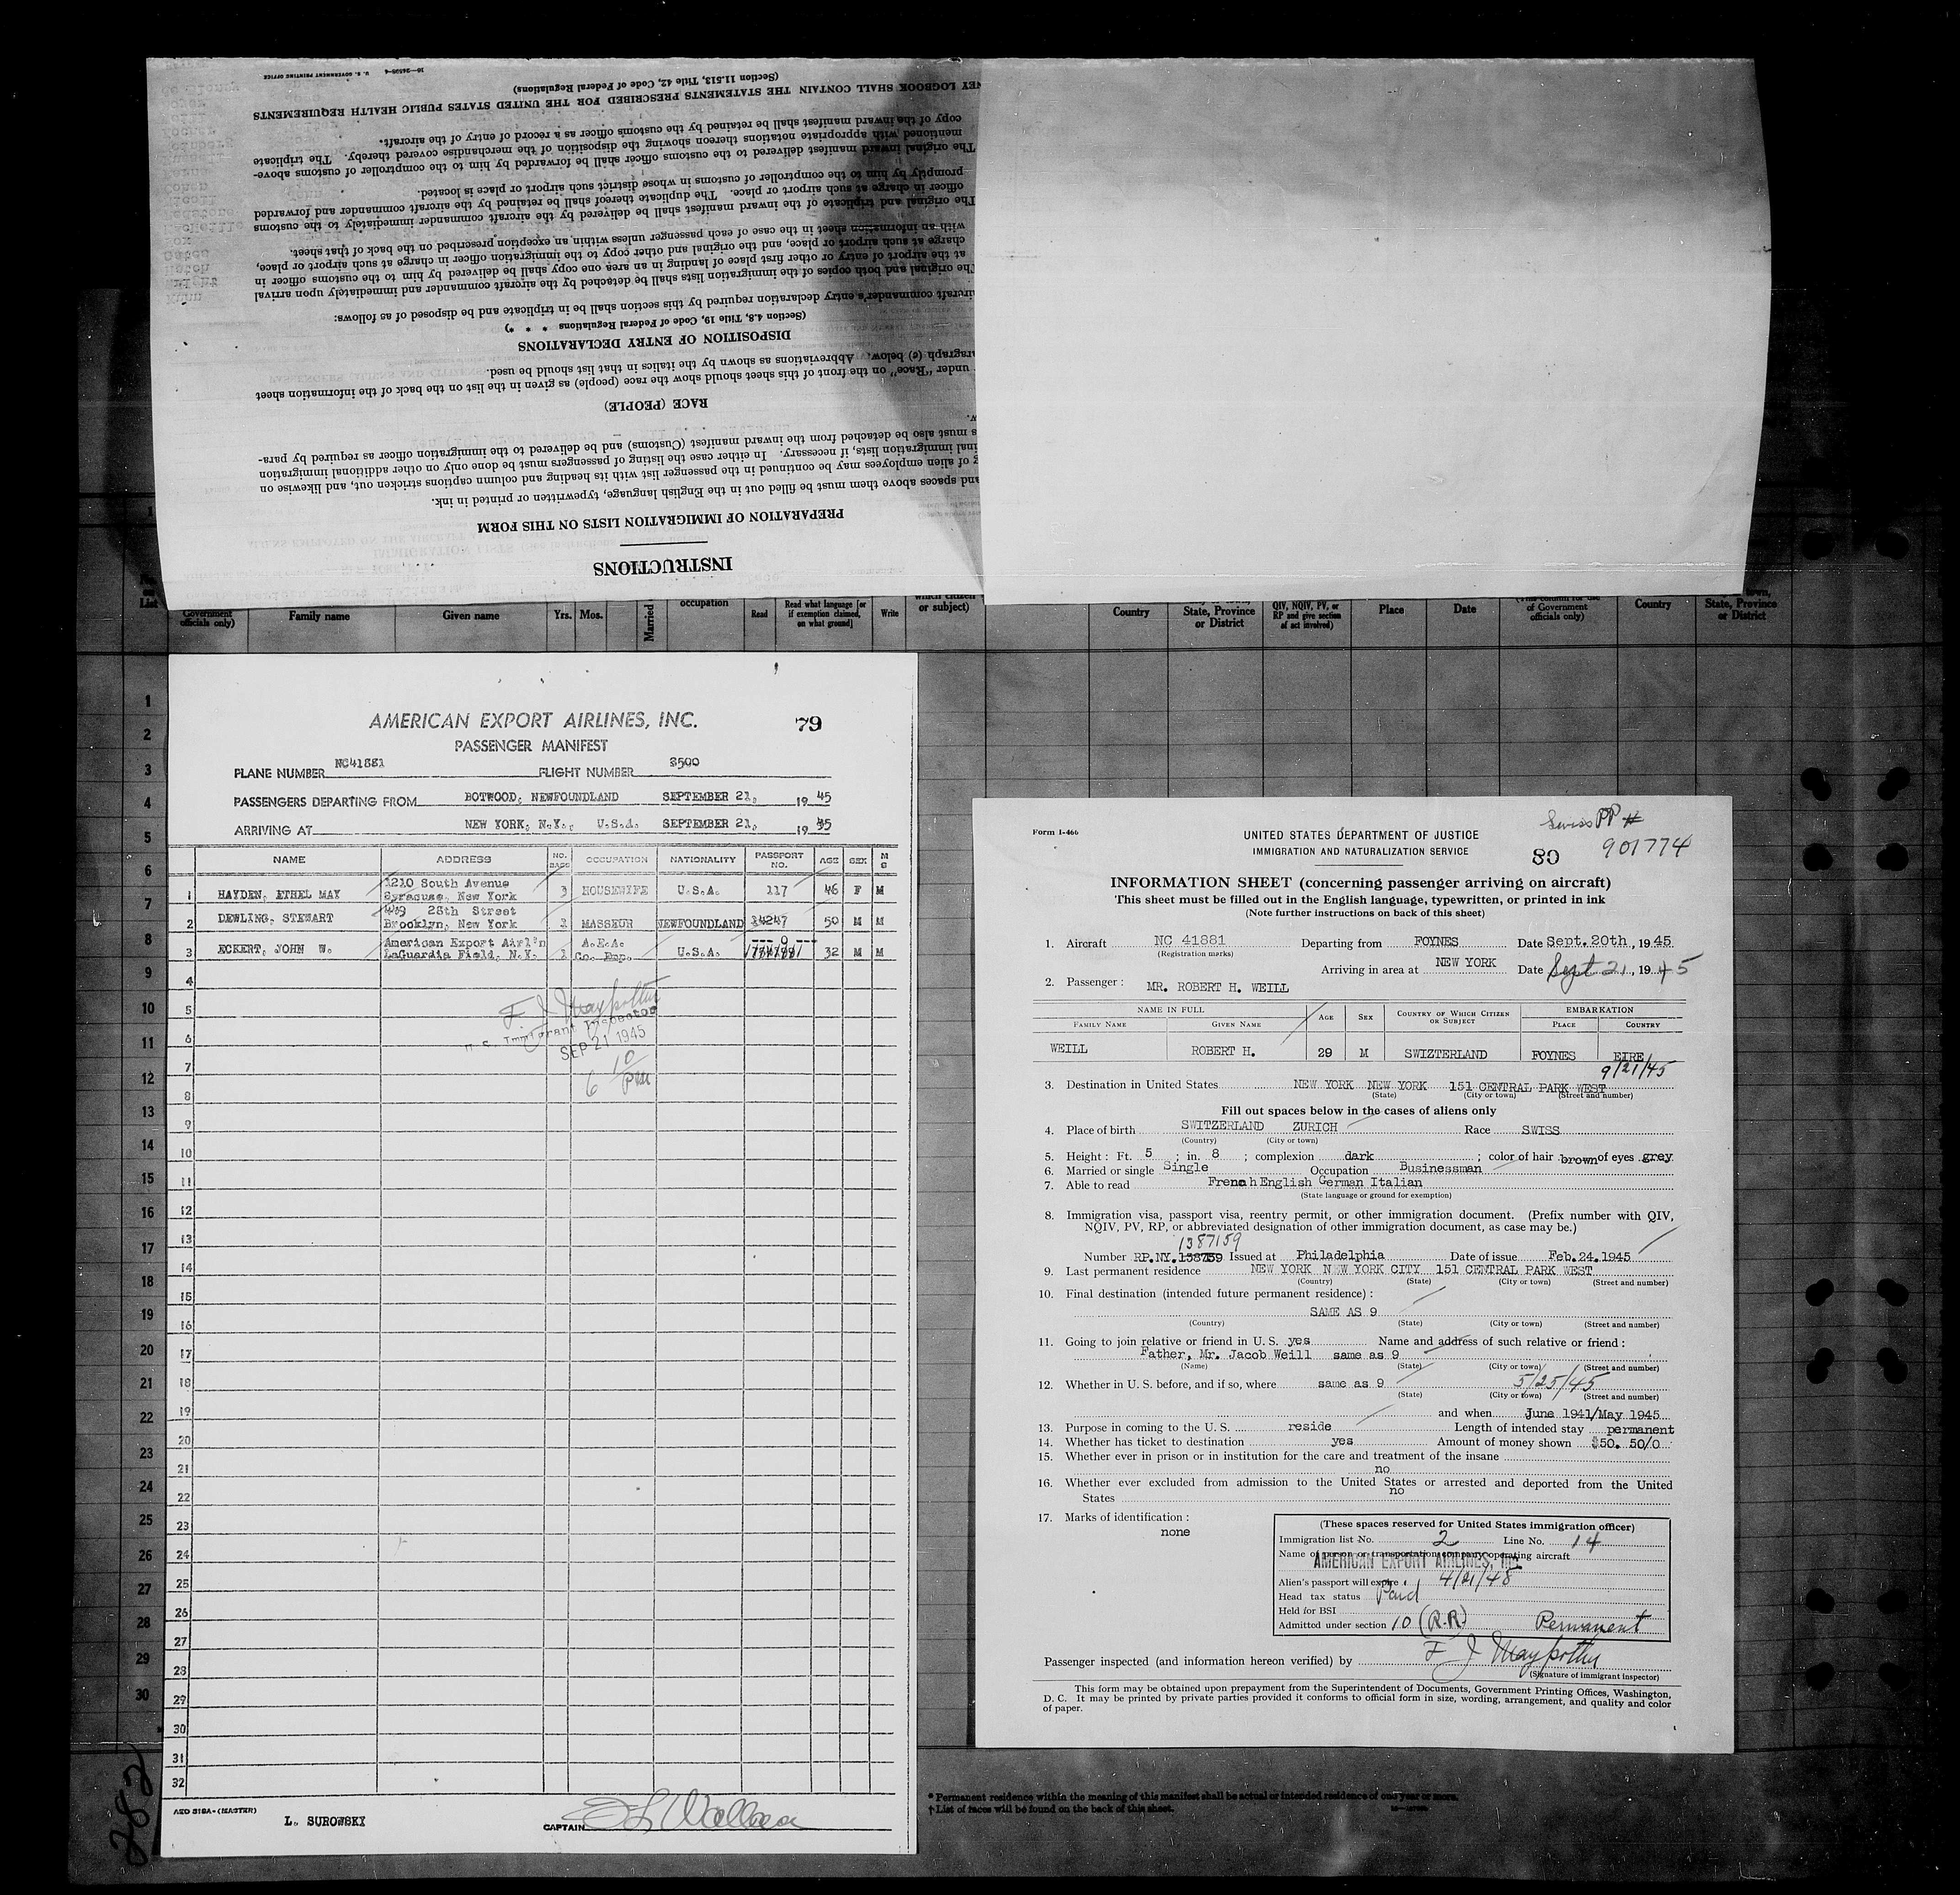 16—24505-4 U. S. GOVERNMENT PRINTING OFFICE
(Section 11.513, Title 42, Code of Federal Regulations)
LOGBOOK SHALL CONTAIN THE STATEMENTS PRESCRIBED FOR THE UNITED STATES PUBLIC HEALTH REQUIREMENTS
copy of the inward manifest shall be retained by the customs officer as a record of entry of the aircraft.
mentioned with appropriate notations thereon showing the disposition of the merchandise covered thereby. The triplicate
The original inward manifest delivered to the customs officer shall be forwarded by him to the comptroller of customs above-
promptly by him to the comptroller of customs in whose district such airport or place is located.
officer in charge at such airport or place. The duplicate thereof shall be retained by the aircraft commander and forwarded
The original and triplicate of the inward manifest shall be delivered by the aircraft commander immediately to the customs
with an information sheet in the case of each passenger unless within an exception prescribed on the back of that sheet.
charge at such airport or place, and the original and other copy to the immigration officer in charge at such airport or place,
at the airport of entry or other first place of landing in an area one copy shall be delivered by him to the customs officer in
The original and both copies of the immigration lists shall be detached by the aircraft commander and immediately upon arrival
aircraft commander's entry declaration required by this section shall be in triplicate and be disposed of as follows:
(Section 4.8, Title 19, Code of Federal Regulations * * *)
DISPOSITION OF ENTRY DECLARATIONS
paragraph (c) below. Abbreviations as shown by the italics in that list should be used.
under "Race" on the front of this sheet should show the race (people) as given in the list on the back of the information sheet
RACE (PEOPLE)
must also be detached from the inward manifest (Customs) and be delivered to the immigration officer as required by para-
immigration lists, if necessary. In either case the listing of passengers must be done only on other additional immigration
of alien employees may be continued in the passenger list with its heading and column captions stricken out, and likewise on
and spaces above them must be filled out in the English language, typewritten or printed in ink.
PREPARATION OF IMMIGRATION LISTS ON THIS FORM
INSTRUCTIONS
List Government officials only) Family name Given name Yrs. Mos. Married occupation Read Read what language [or if exemption claimed, on what ground] Write which citizen or subject) Country State, Province or District QIV, NQIV, PV, or RP and give section of act involved) Place Date of Government officials only) Country State, Province or District
1
2
3
4
5
6
7
8
9
10
11
12
13
14
15
16
17
18
19
20
21
22
23
24
25
26
27
28
29
30
282
AMERICAN EXPORT AIRLINES, INC. 79
PASSENGER MANIFEST
PLANE NUMBER NC41881 FLIGHT NUMBER 3500
PASSENGERS DEPARTING FROM BOTWOOD, NEWFOUNDLAND SEPTEMBER 21, 19 45
ARRIVING AT NEW YORK, N.Y., U.S.A. SEPTEMBER 21, 19 45
NAME ADDRESS NO. BAGS OCCUPATION NATIONALITY PASSPORT NO. AGE SEX M S
1 HAYDEN, ETHEL MAY 1210 South Avenue Syracuse, New York 3 HOUSEWIFE U.S.A. 117 46 F M
2 DEWLING, STEWART 28th Street Brooklyn, New York 1 MASSEUR NEWFOUNDLAND 14247 50 M M
3 ECKERT, JOHN W. American Export Airl'n LaGuardia Field, N.Y. 1 A.E.A. Co. Emp. U.S.A. ---0--- 32 M M
4
5
6
7
8
9
10
11
12
13
14
15
16
17
18
19
20
21
22
23
24
25
26
27
28
29
30
31
32
U. S. Immigrant Inspector
SEP 21 1945
6 10/PM
AEO 318A-(MASTER)
L. SUROWSKI CAPTAIN
Form I-466
UNITED STATES DEPARTMENT OF JUSTICE
IMMIGRATION AND NATURALIZATION SERVICE
80
Swiss PP #
901774
INFORMATION SHEET (concerning passenger arriving on aircraft)
This sheet must be filled out in the English language, typewritten, or printed in ink
(Note further instructions on back of this sheet)
1. Aircraft NC 41881 Departing from FOYNES Date Sept. 20th, 1945
(Registration marks)
Arriving in area at NEW YORK Date Sept 21, 1945
2. Passenger: MR. ROBERT H. WEILL
NAME IN FULL AGE SEX COUNTRY OF WHICH CITIZEN OR SUBJECT EMBARKATION
FAMILY NAME GIVEN NAME PLACE COUNTRY
WEILL ROBERT H. 29 M SWIZTERLAND FOYNES EIRE
9/21/45
3. Destination in United States NEW YORK NEW YORK 151 CENTRAL PARK WEST
(State) (City or town) (Street and number)
Fill out spaces below in the cases of aliens only
4. Place of birth SWITZERLAND ZURICH Race SWISS
(Country) (City or town)
5. Height: Ft. 5; in. 8; complexion dark; color of hair brown of eyes grey
6. Married or single Single Occupation Businessman
7. Able to read French English German Italian
(State language or ground for exemption)
8. Immigration visa, passport visa, reentry permit, or other immigration document. (Prefix number with QIV,
NQIV, PV, RP, or abbreviated designation of other immigration document, as case may be.)
1387159
Number RP.NY.138759 Issued at Philadelphia Date of issue Feb.24.1945
9. Last permanent residence NEW YORK NEW YORK CITY 151 CENTRAL PARK WEST
(Country) (State) (City or town) (Street and number)
10. Final destination (intended future permanent residence):
SAME AS 9
(Country) (State) (City or town) (Street and number)
11. Going to join relative or friend in U. S. yes Name and address of such relative or friend:
Father, Mr. Jacob Weill same as 9
(Name) (State) (City or town) (Street and number)
12. Whether in U. S. before, and if so, where same as 9 5/25/45
(State) (City or town) (Street and number)
and when June 1941/May 1945
13. Purpose in coming to the U. S. reside Length of intended stay permanent
14. Whether has ticket to destination yes Amount of money shown $50. 50/0
15. Whether ever in prison or in institution for the care and treatment of the insane
no
16. Whether ever excluded from admission to the United States or arrested and deported from the United
States no
17. Marks of identification:
none
(These spaces reserved for United States immigration officer)
Immigration list No. 2 Line No. 14
Name of person or transportation company operating aircraft
AMERICAN EXPORT AIRLINES, INC.
Alien's passport will expire 4/21/48
Head tax status Paid
Held for BSI
Admitted under section 10 (R.R.) Permanent
Passenger inspected (and information hereon verified) by
(Signature of immigrant inspector)
This form may be obtained upon prepayment from the Superintendent of Documents, Government Printing Offices, Washington,
D. C. It may be printed by private parties provided it conforms to official form in size, wording, arrangement, and quality and color
of paper.
* Permanent residence within the meaning of this manifest shall be actual or intended residence of one year or more.
† List of races will be found on the back of this sheet.